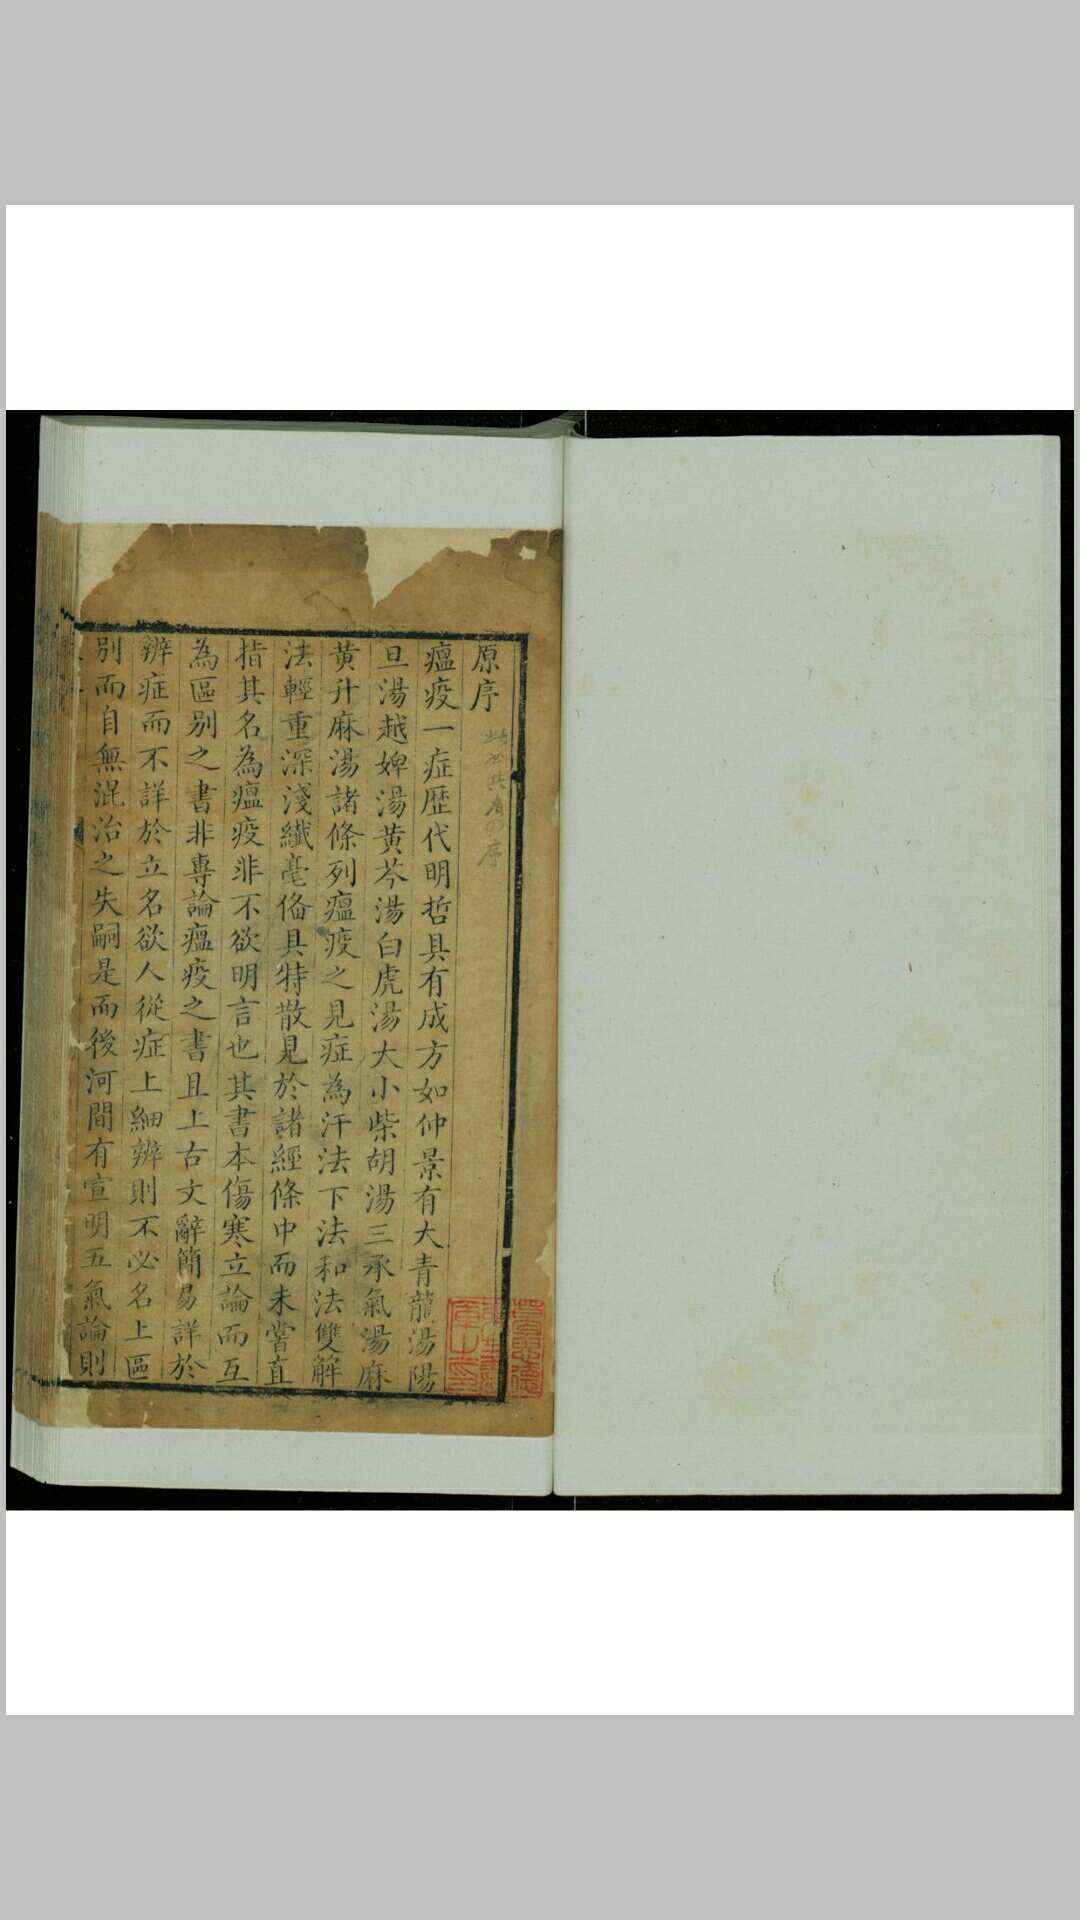 原序
瘟疫一症歷代明哲具有成方如仲景有大青龍湯陽
旦湯越婢湯黄芩湯白虎湯大小柴胡湯三承氣湯麻
黄升麻湯諸條列瘟疫之見症為汗法下法和法雙解
法輕重深淺纎毫俻具特散見於諸經條中而未嘗直
指其名為瘟疫非不欲明言也其書本傷寒立論而互
為區别之書非專論瘟疫之書且上古文辭簡易詳於
辨症而不詳於立名欲人從症上細辨則不必名上區
别而自無混治之失嗣是而後河間有宣明五氣論則